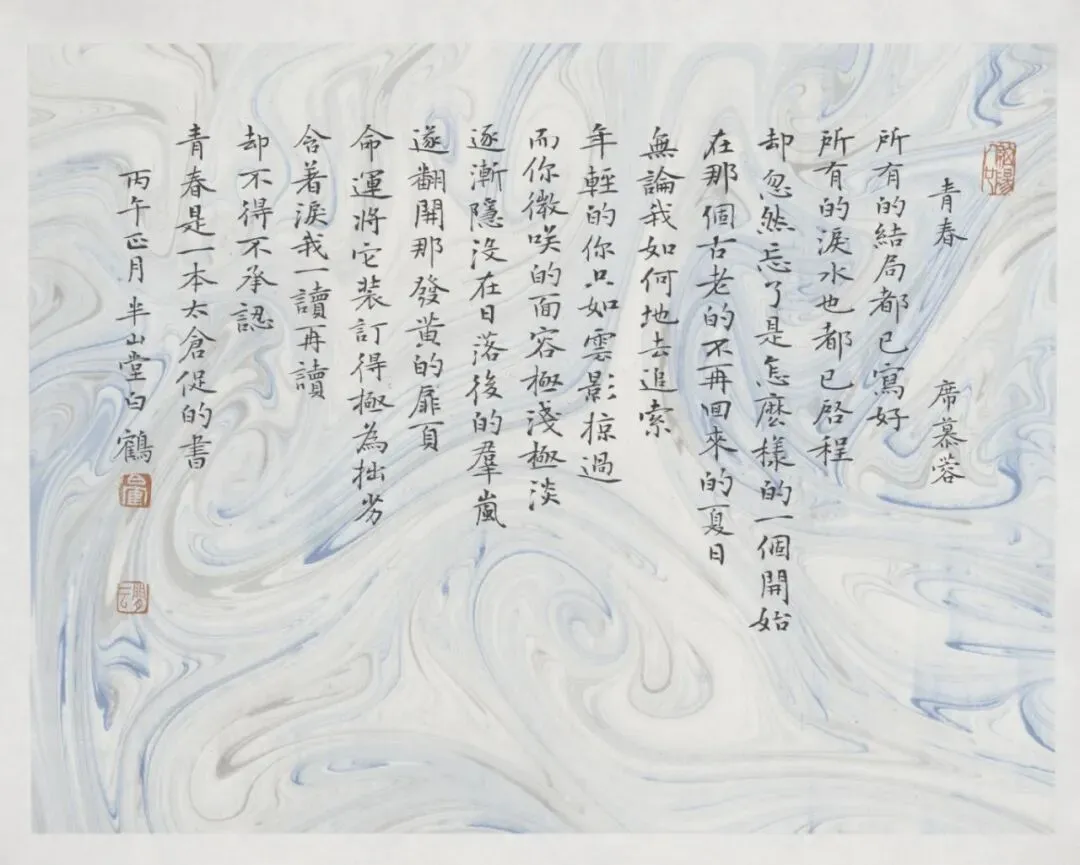 青春 席慕蓉
所有的結局都已寫好
所有的淚水也都已啓程
却忽然忘了是怎麽樣的一個開始
在那個古老的不再回來的夏日
無論我如何地去追索
年輕的你只如雲影掠過
而你微咲的面容極淺極淡
逐漸隱没在日落後的羣嵐
遂翻開那發黄的扉頁
命運將它裝訂得極為拙劣
含着淚我一讀再讀
却不得不承認
青春是一本太倉促的書
丙午正月半山堂白鶴